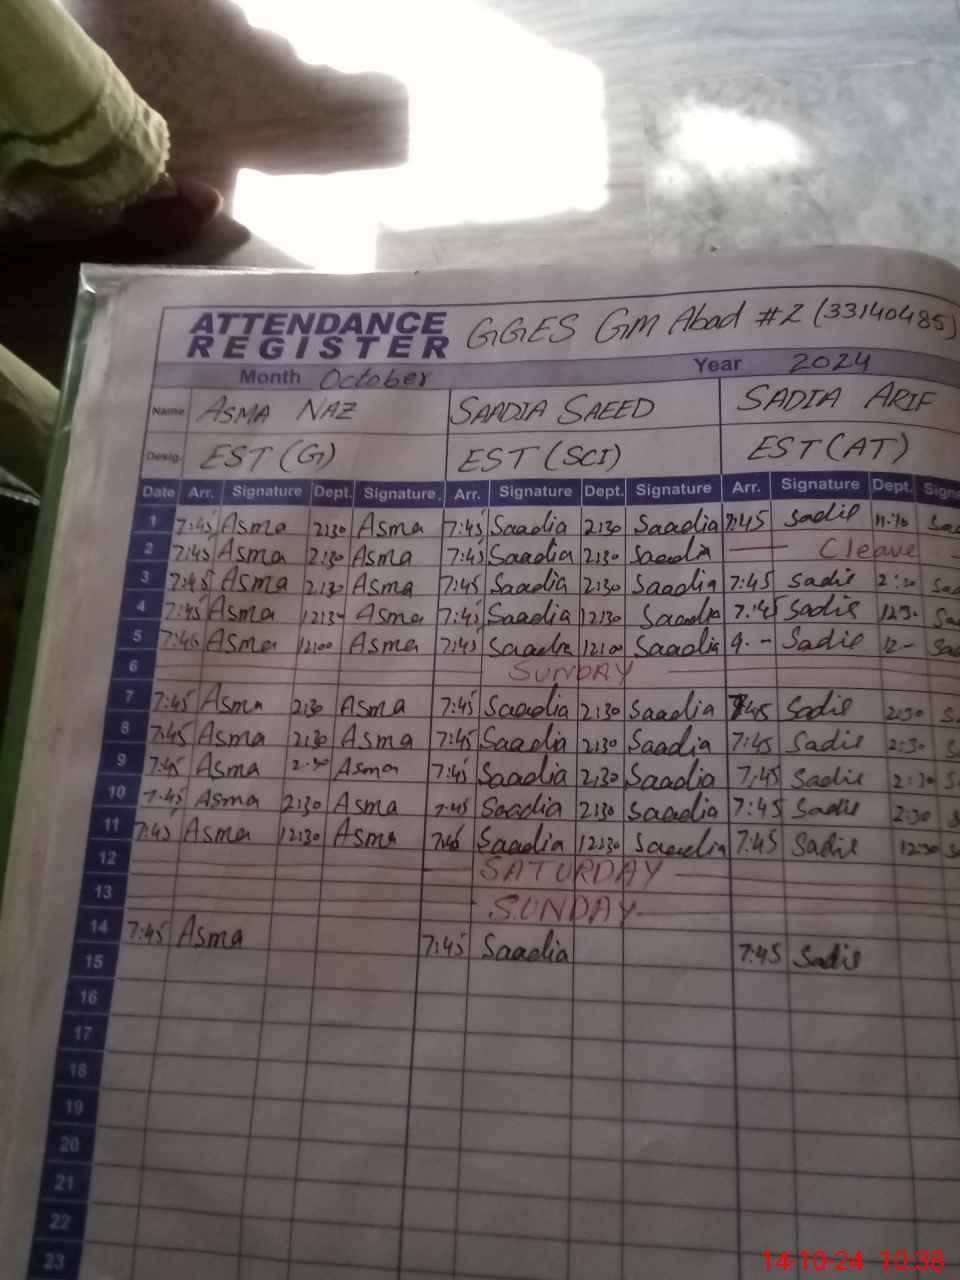 ATTENDANCE REGISTER GGES GM Abad #2 (33140485)
Month October Year 2024
Name ASMA NAZ SAADIA SAEED SADIA ARIF
Desig. EST (G) EST (SCI) EST (AT)
Date Arr. Signature Dept. Signature. Arr. Signature Dept. Signature Arr. Signature Dept.
1 7:45 Asma 2:30 Asma 7:45 Saadia 2:30 Saadia 7:45 Sadie
2 7:45 Asma 2:30 Asma 7:45 Saadia 2:30 Saadia Cleave
3 7:45 Asma 2:30 Asma 7:45 Saadia 2:30 Saadia 7:45 Sadie 2:30
4 7:45 Asma 12:30 Asma 7:45 Saadia 12:30 Saadia 7:45 Sadie 12:30
5 7:45 Asma 12:00 Asma 7:45 Saadia 12:00 Saadia 9.-- Sadie 12-
6 SUNDAY
7 7:45 Asma 2:30 Asma 7:45 Saadia 2:30 Saadia 7:45 Sadie 2:30
8 7:45 Asma 2:30 Asma 7:45 Saadia 2:30 Saadia 7:45 Sadie 2:30
9 7:45 Asma 2:30 Asma 7:45 Saadia 2:30 Saadia 7:45 Sadie 2:30
10 7:45 Asma 2:30 Asma 7:45 Saadia 2:30 Saadia 7:45 Sadie 2:30
11 7:45 Asma 12:30 Asma 7:45 Saadia 12:30 Saadia 7:45 Sadie 12:30
12 SATURDAY
13 SUNDAY
14 7:45 Asma 7:45 Saadia 7:45 Sadie
15
16
17
18
19
20
21
22
23
14-10-24 10:38